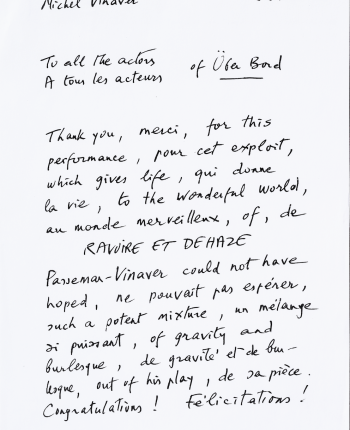 Michel Vinaver
To all the actors
A tous les acteurs
of Über Bord
Thank you, merci, for this
performance, pour cet exploit,
which gives life, qui donne
la vie, to the wonderful world,
au monde merveilleux, of, de
RAVOIRE ET DEHAZE
Passemar-Vinaver could not have
hoped, ne pouvait pas espérer,
such a potent mixture, un mélange
si puissant, of gravity and
burlesque, de gravité et de bur-
lesque, out of his play, de sa pièce.
Congratulations! Félicitations!